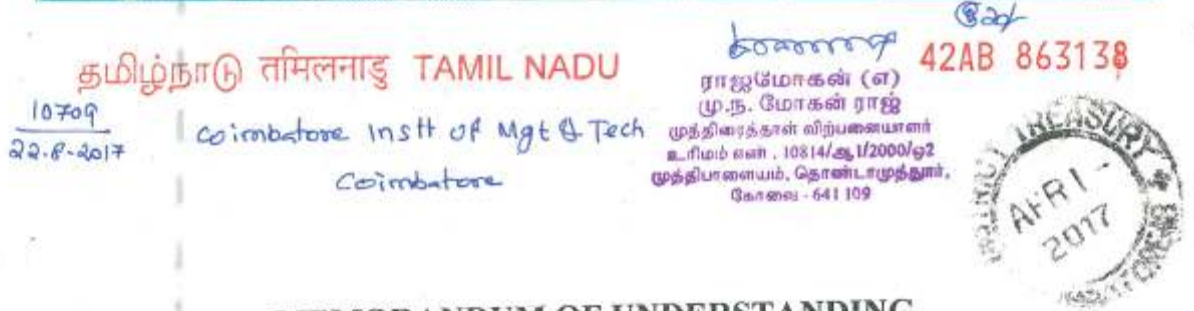 தமிழ்நாடு तमिलनाडु TAMIL NADU
42AB 863138
10709
22-8-2017
Coimbatore Instt of Mgt & Tech
Coimbatore
ராஜமோகன் (எ)
மு.ந. மோகன் ராஜ்
முத்திரைத்தாள் விற்பனையாளர்
உரிமம் எண் . 10814/ஆ1/2000/ஒ2
முத்திபாளையம், தொண்டாமுத்தூர்,
கோவை - 641 109
TREASURY
APR 1 -
2017
MEMORANDUM OF UNDERSTANDING